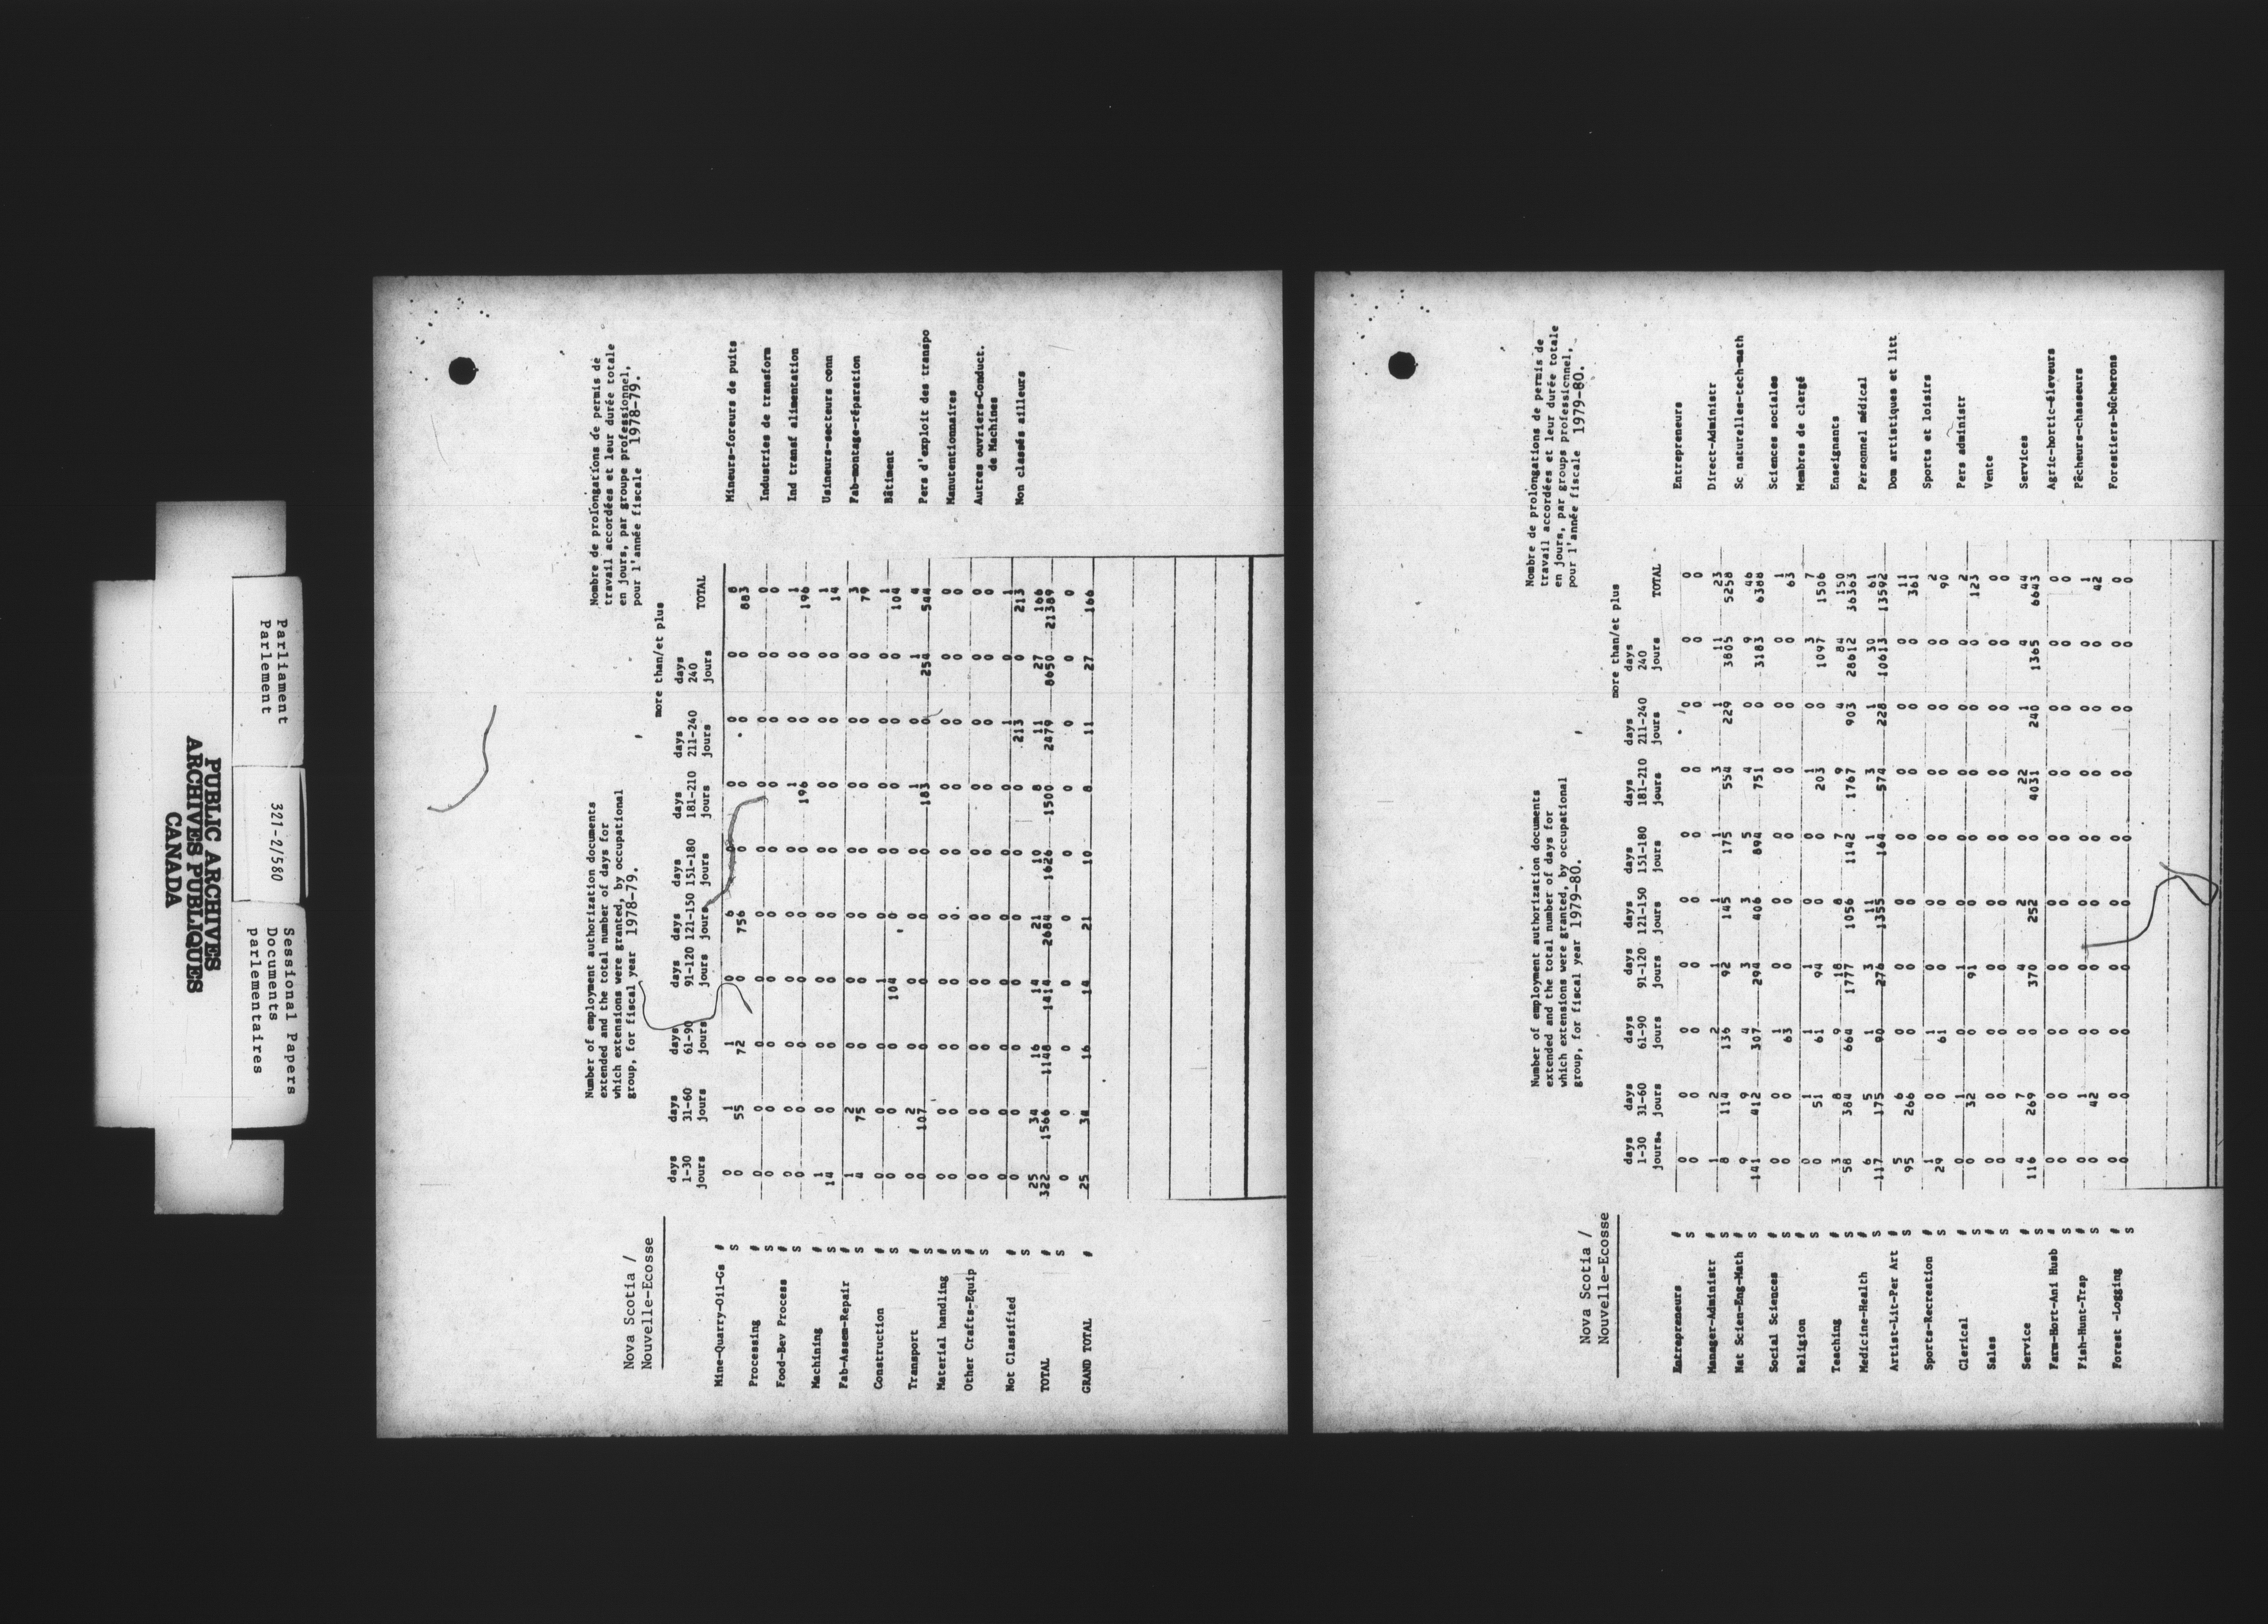 PUBLIC ARCHIVES
ARCHIVES PUBLIQUES
CANADA
Parliament
Parlement
321-2/580
Sessional Papers
Documents
parlementaires
Number of employment authorization documents
extended and the total number of days for
which extensions were granted, by occupational
group, for fiscal year 1978-79.
Nombre de prolongations de permis de
travail accordées et leur durée totale
en jours, par groupe professionnel,
pour l'année fiscale 1978-79.
Nova Scotia /
Nouvelle-Ecosse
more than/et plus
days days days days days days days days days
1-30 31-60 61-90 91-120 121-150 151-180 181-210 211-240 240 TOTAL
jours jours jours jours jours jours jours jours jours
Mine-Quarry-Oil-Gs # 0 1 1 0 6 0 0 0 0 8 Mineurs-foreurs de puits
S 0 55 72 0 756 0 0 0 0 883
Processing # 0 0 0 0 0 0 0 0 0 0 Industries de transform
S 0 0 0 0 0 0 0 0 0 0
Food-Bev Process # 0 0 0 0 0 0 1 0 0 1 Ind transf alimentation
S 0 0 0 0 0 0 196 0 0 196
Machining # 1 0 0 0 0 0 0 0 0 1 Usineurs-secteurs conn
S 14 0 0 0 0 0 0 0 0 14
Fab-Assem-Repair # 1 2 0 0 0 0 0 0 0 3 Fab-montage-réparation
S 4 75 0 0 0 0 0 0 0 79
Construction # 0 0 0 1 0 0 0 0 0 1 Bâtiment
S 0 0 0 104 0 0 0 0 0 104
Transport # 0 2 0 0 0 0 1 0 1 4 Pers d'exploit des transpo
S 0 107 0 0 0 0 183 0 254 544
Material handling # 0 0 0 0 0 0 0 0 0 0 Manutentionnaires
S 0 0 0 0 0 0 0 0 0 0
Other Crafts-Equip # 0 0 0 0 0 0 0 0 0 0 Autres ouvriers-Conduct.
S 0 0 0 0 0 0 0 0 0 0 de Machines
Not Classified # 0 0 0 0 0 0 0 1 0 1 Non classés ailleurs
S 0 0 0 0 0 0 0 213 0 213
TOTAL # 25 34 16 14 21 10 8 11 27 166
S 322 1566 1148 1414 2684 1626 1500 2479 8650 21389
0 0 0 0 0 0 0 0 0 0
GRAND TOTAL # 25 34 16 14 21 10 8 11 27 166
Number of employment authorization documents
extended and the total number of days for
which extensions were granted, by occupational
group, for fiscal year 1979-80.
Nombre de prolongations de permis de
travail accordées et leur durée totale
en jours, par groups professionnel,
pour l'année fiscale 1979-80.
Nova Scotia /
Nouvelle-Ecosse
more than/et plus
days days days days days days days days days
1-30 31-60 61-90 91-120 121-150 151-180 181-210 211-240 240 TOTAL
jours. jours jours jours jours jours jours jours jours
Entrepreneurs # 0 0 0 0 0 0 0 0 0 0 Entrepreneurs
S 0 0 0 0 0 0 0 0 0 0
Manager-Administr # 1 2 2 1 1 1 3 1 11 23 Direct-Administr
S 8 114 136 92 145 175 554 229 3805 5258
Nat Scien-Eng-Math # 9 9 4 3 3 5 4 0 9 46 Sc naturelles-tech-math
S 141 412 307 294 406 894 751 0 3183 6388
Social Sciences # 0 0 1 0 0 0 0 0 0 1 Sciences sociales
S 0 0 63 0 0 0 0 0 0 63
Religion # 0 1 1 1 0 0 1 0 3 7 Membres de clergé
S 0 51 61 94 0 0 203 0 1097 1506
Teaching # 3 8 9 18 8 7 9 4 84 150 Enseignants
S 58 384 664 1777 1056 1142 1767 903 28612 36363
Medicine-Health # 6 5 1 3 11 1 3 1 30 61 Personnel médical
S 117 175 90 276 1355 164 574 228 10613 13592
Artist-Lit-Per Art # 5 6 0 0 0 0 0 0 0 11 Dom artistiques et litt
S 95 266 0 0 0 0 0 0 0 361
Sports-Recreation # 1 0 1 0 0 0 0 0 0 2 Sports et loisirs
S 29 0 61 0 0 0 0 0 0 90
Clerical # 0 1 0 1 0 0 0 0 0 2 Pers administr
S 0 32 0 91 0 0 0 0 0 123
Sales # 0 0 0 0 0 0 0 0 0 0 Vente
S 0 0 0 0 0 0 0 0 0 0
Service # 4 7 0 4 2 0 22 1 4 44 Services
S 116 269 0 370 252 0 4031 240 1365 6643
Farm-Hort-Ani Husb # 0 0 0 0 0 0 0 0 0 0 Agric-hortic-éleveurs
S 0 0 0 0 0 0 0 0 0 0
Fish-Hunt-Trap # 0 1 0 0 0 0 0 0 0 1 Pêcheurs-chasseurs
S 0 42 0 0 0 0 0 0 0 42
Forest -Logging # 0 0 0 0 0 0 0 0 0 0 Forestiers-bûcherons
S 0 0 0 0 0 0 0 0 0 0